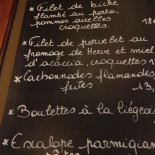 * Filet de biche
flambé au porto,
pommes airelles
croquettes. 18
* Filet de porcelet au
fromage de Herve et miel
d'acacia, croquettes 1
* Carbonnades flamandes
frites 13,
* Boulettes à la liégeoi
* Escalope parmigian